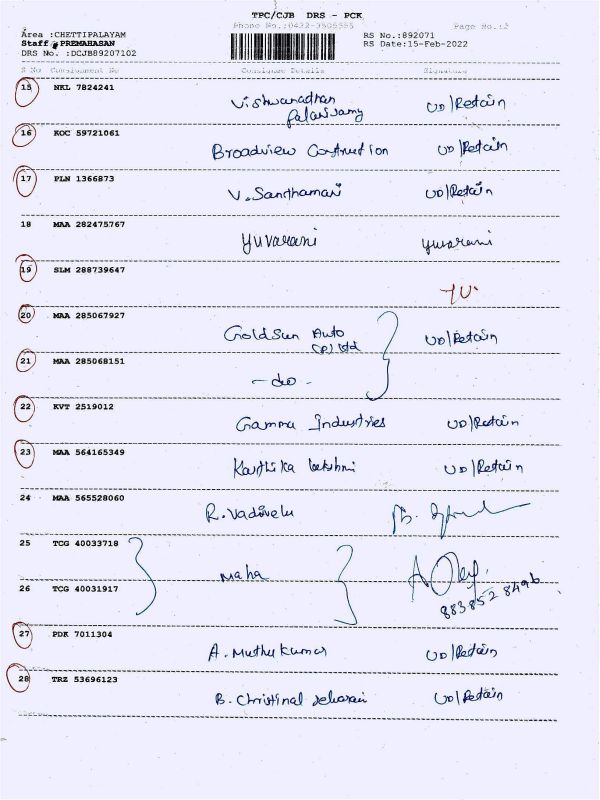 TPC/CJB DRS - PCK
Phone No.:0422-3505555 Page No.:2
Area :CHETTIPALAYAM RS No.:892071
Staff : PREMAHASAN RS Date:15-Feb-2022
DRS No. :DCJB89207102
S No Consignment No Consignee Details Signature
15 NKL 7824241 Vishwanadhan
Palanisamy UD/Retain
16 KOC 59721061 Broadview Contruction UD/Retain
17 PLN 1366873 V. Santhamani UD/Retain
18 MAA 282475767 Yuvarani Yuvarani
19 SLM 288739647
20 MAA 285067927 GoldSun Auto UD/Retain
(P) Ltd
21 MAA 285068151 - do -
22 KVT 2519012 Gamma Industries UD/Retain
23 MAA 564165349 Karthika lakshmi UD/Retain
24 MAA 565528060 R. Vadivelu
25 TCG 40033718
Maha
26 TCG 40031917 883852 8496
27 PDK 7011304 A. Muthu Kumar UD/Retain
28 TRZ 53696123 B. Christinal UD/Retain